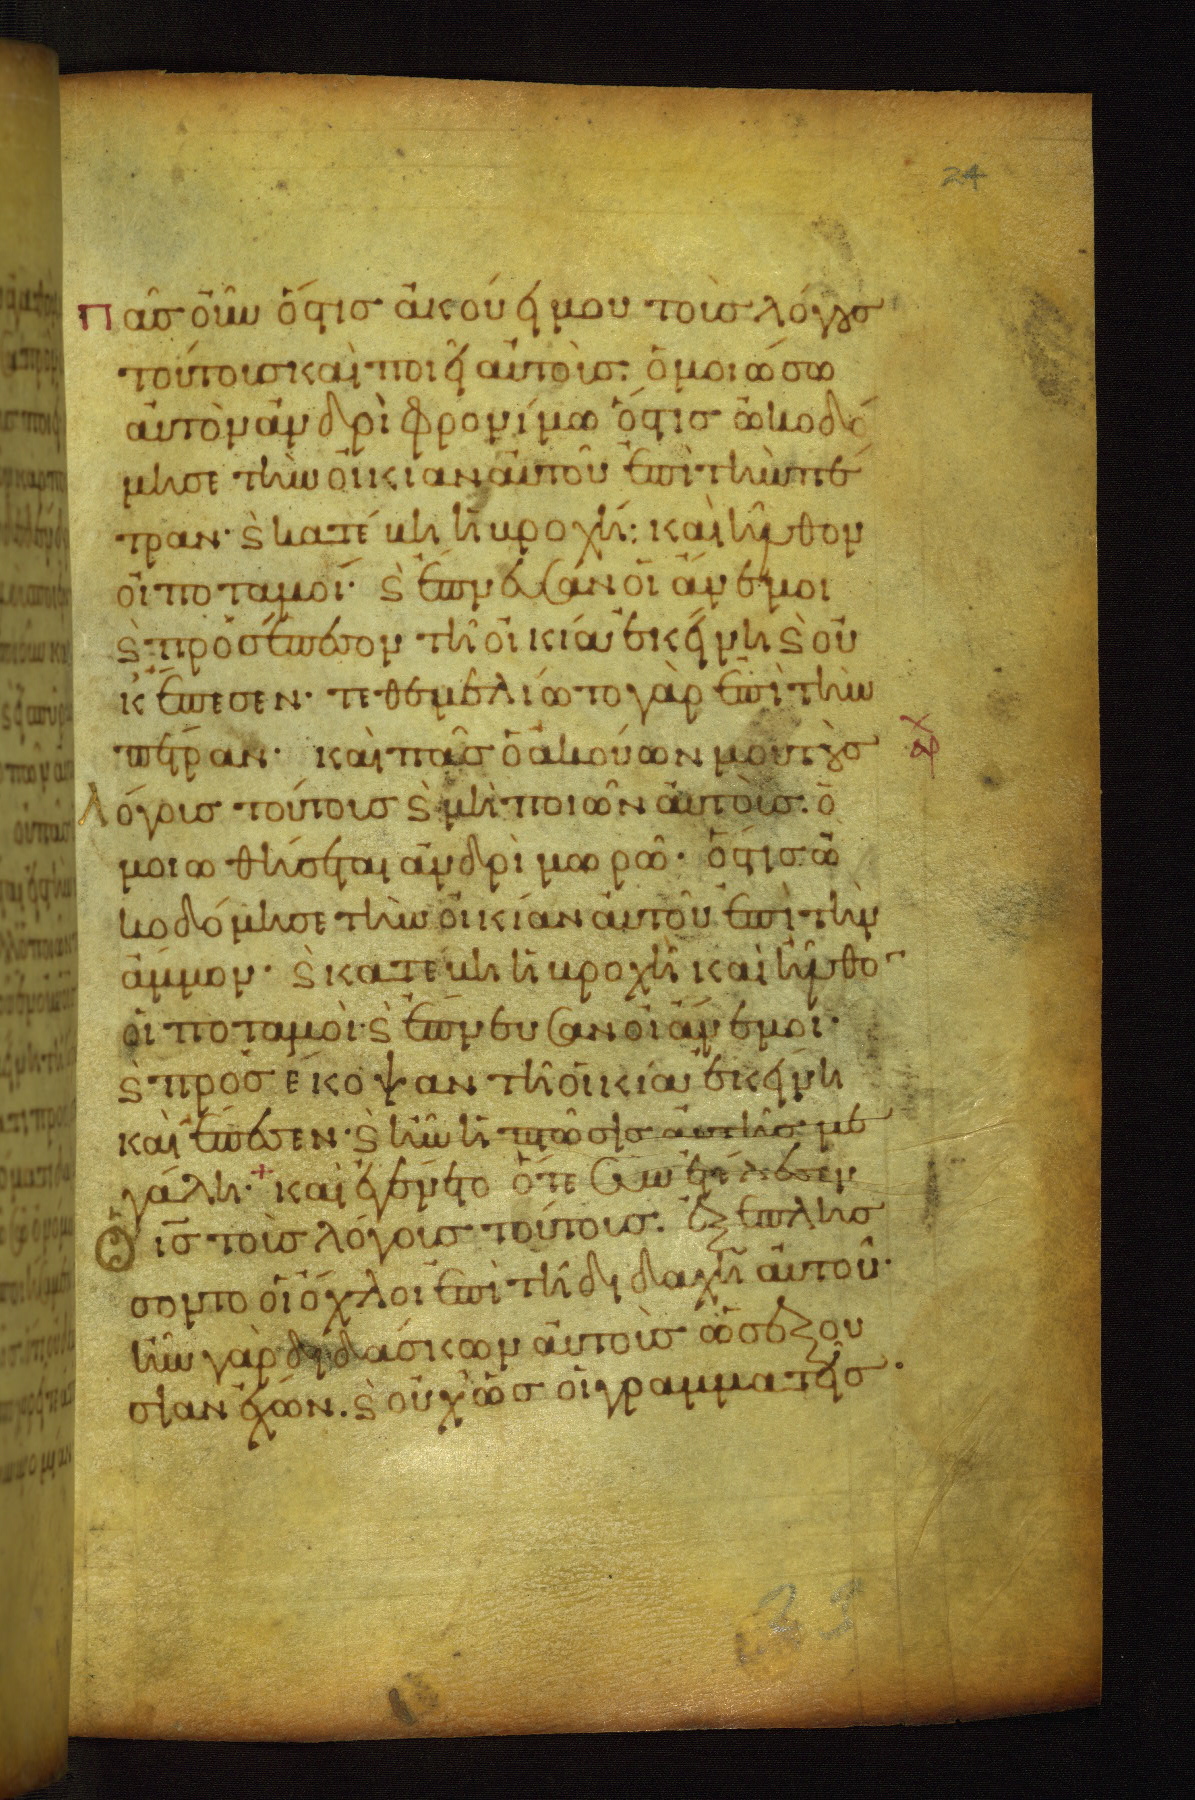 24
Πᾶς οὖν ὅστις ἀκούει μου τοὺς λόγους
τούτους καὶ ποιεῖ αὐτοὺς· ὁμοιώσω
αὐτὸν ἀνδρὶ φρονίμω ὅστις ὠκοδό
μησε τὴν οἰκίαν αὐτοῦ ἐπὶ τὴν πέ
τραν· ϗ κατέβη ἡ βροχή· καὶ ἦλθον
οἱ ποταμοί· ϗ ἔπνευσαν οἱ ἄνεμοι
ϗ προσέπεσον τῆ οἰκία ἐκείνη ϗ οὐ
κ ἔπεσεν· τεθεμελίωτο γὰρ ἐπὶ τὴν
πέτραν· καὶ πᾶς ὁ ἀκούων μου τοὺς
λόγους τούτους ϗ μὴ ποιῶν αὐτοὺς· ὁ
μοιωθήσεται ἀνδρὶ μωρῶ· ὅστις ὠ
κοδόμησε τὴν οἰκίαν αὐτοῦ ἐπὶ τὴν
ἄμμον· ϗ κατέβη ἡ βροχὴ καὶ ἦλθο
οἱ ποταμοὶ· ϗ ἔπνευσαν οἱ ἄνεμοι·
ϗ προσέκοψαν τῆ οἰκία ἐκείνη
καὶ ἔπεσεν· ϗ ἦν ἡ πτῶσις αὐτῆς με
γάλη·+ καὶ ἐγένετο ὅτε συνετέλεσεν
Ὁ ις τοὺς λόγους τούτους· ἐξεπλήσ
σοντο οἱ ὄχλοι ἐπὶ τῆ διδαχῆ αὐτοῦ·
ἦν γὰρ διδάσκων αὐτοὺς ὡς ἐξου
σίαν ἔχων· ϗ οὐχ ὡς οἱ γραμματεῖς·